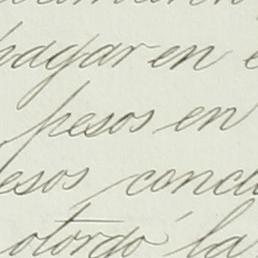 pagar en e
pesos en
esos, condu
otorgó la